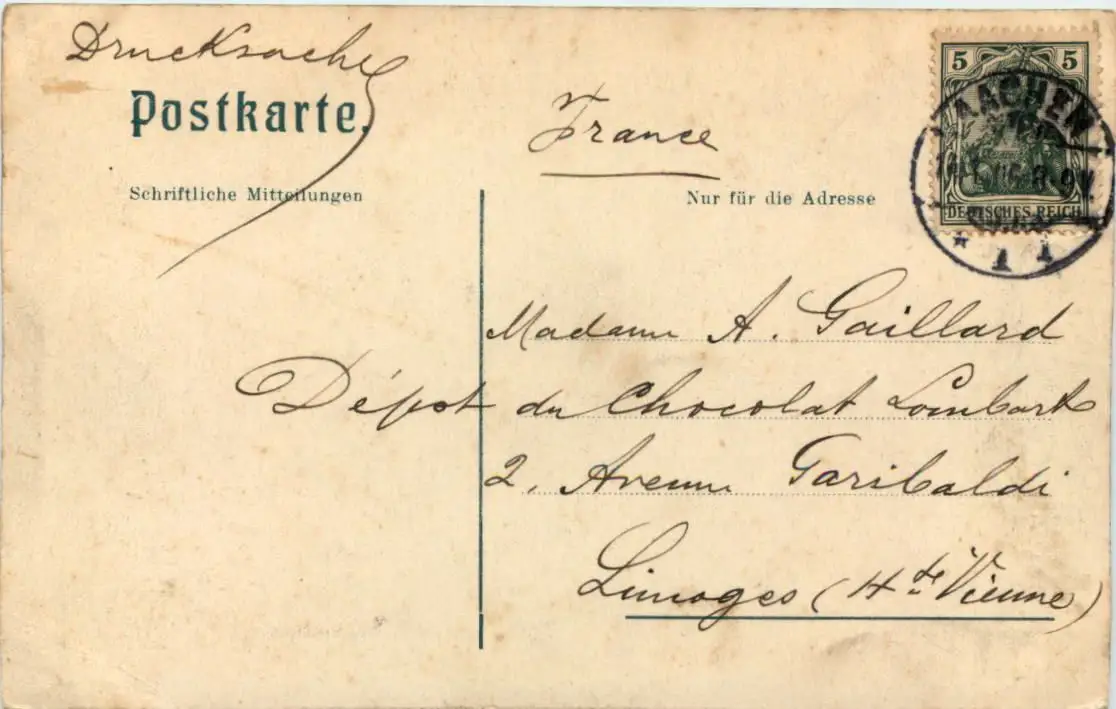 Drucksache
Postkarte.
Schriftliche Mitteilungen
France
Nur für die Adresse
5 5
DEUTSCHES REICH
AACHEN
* 1 1
Madame A. Gaillard
Dépôt du Chocolat Lombart
2, Avenue Garibaldi
Limoges (Hte Vienne)